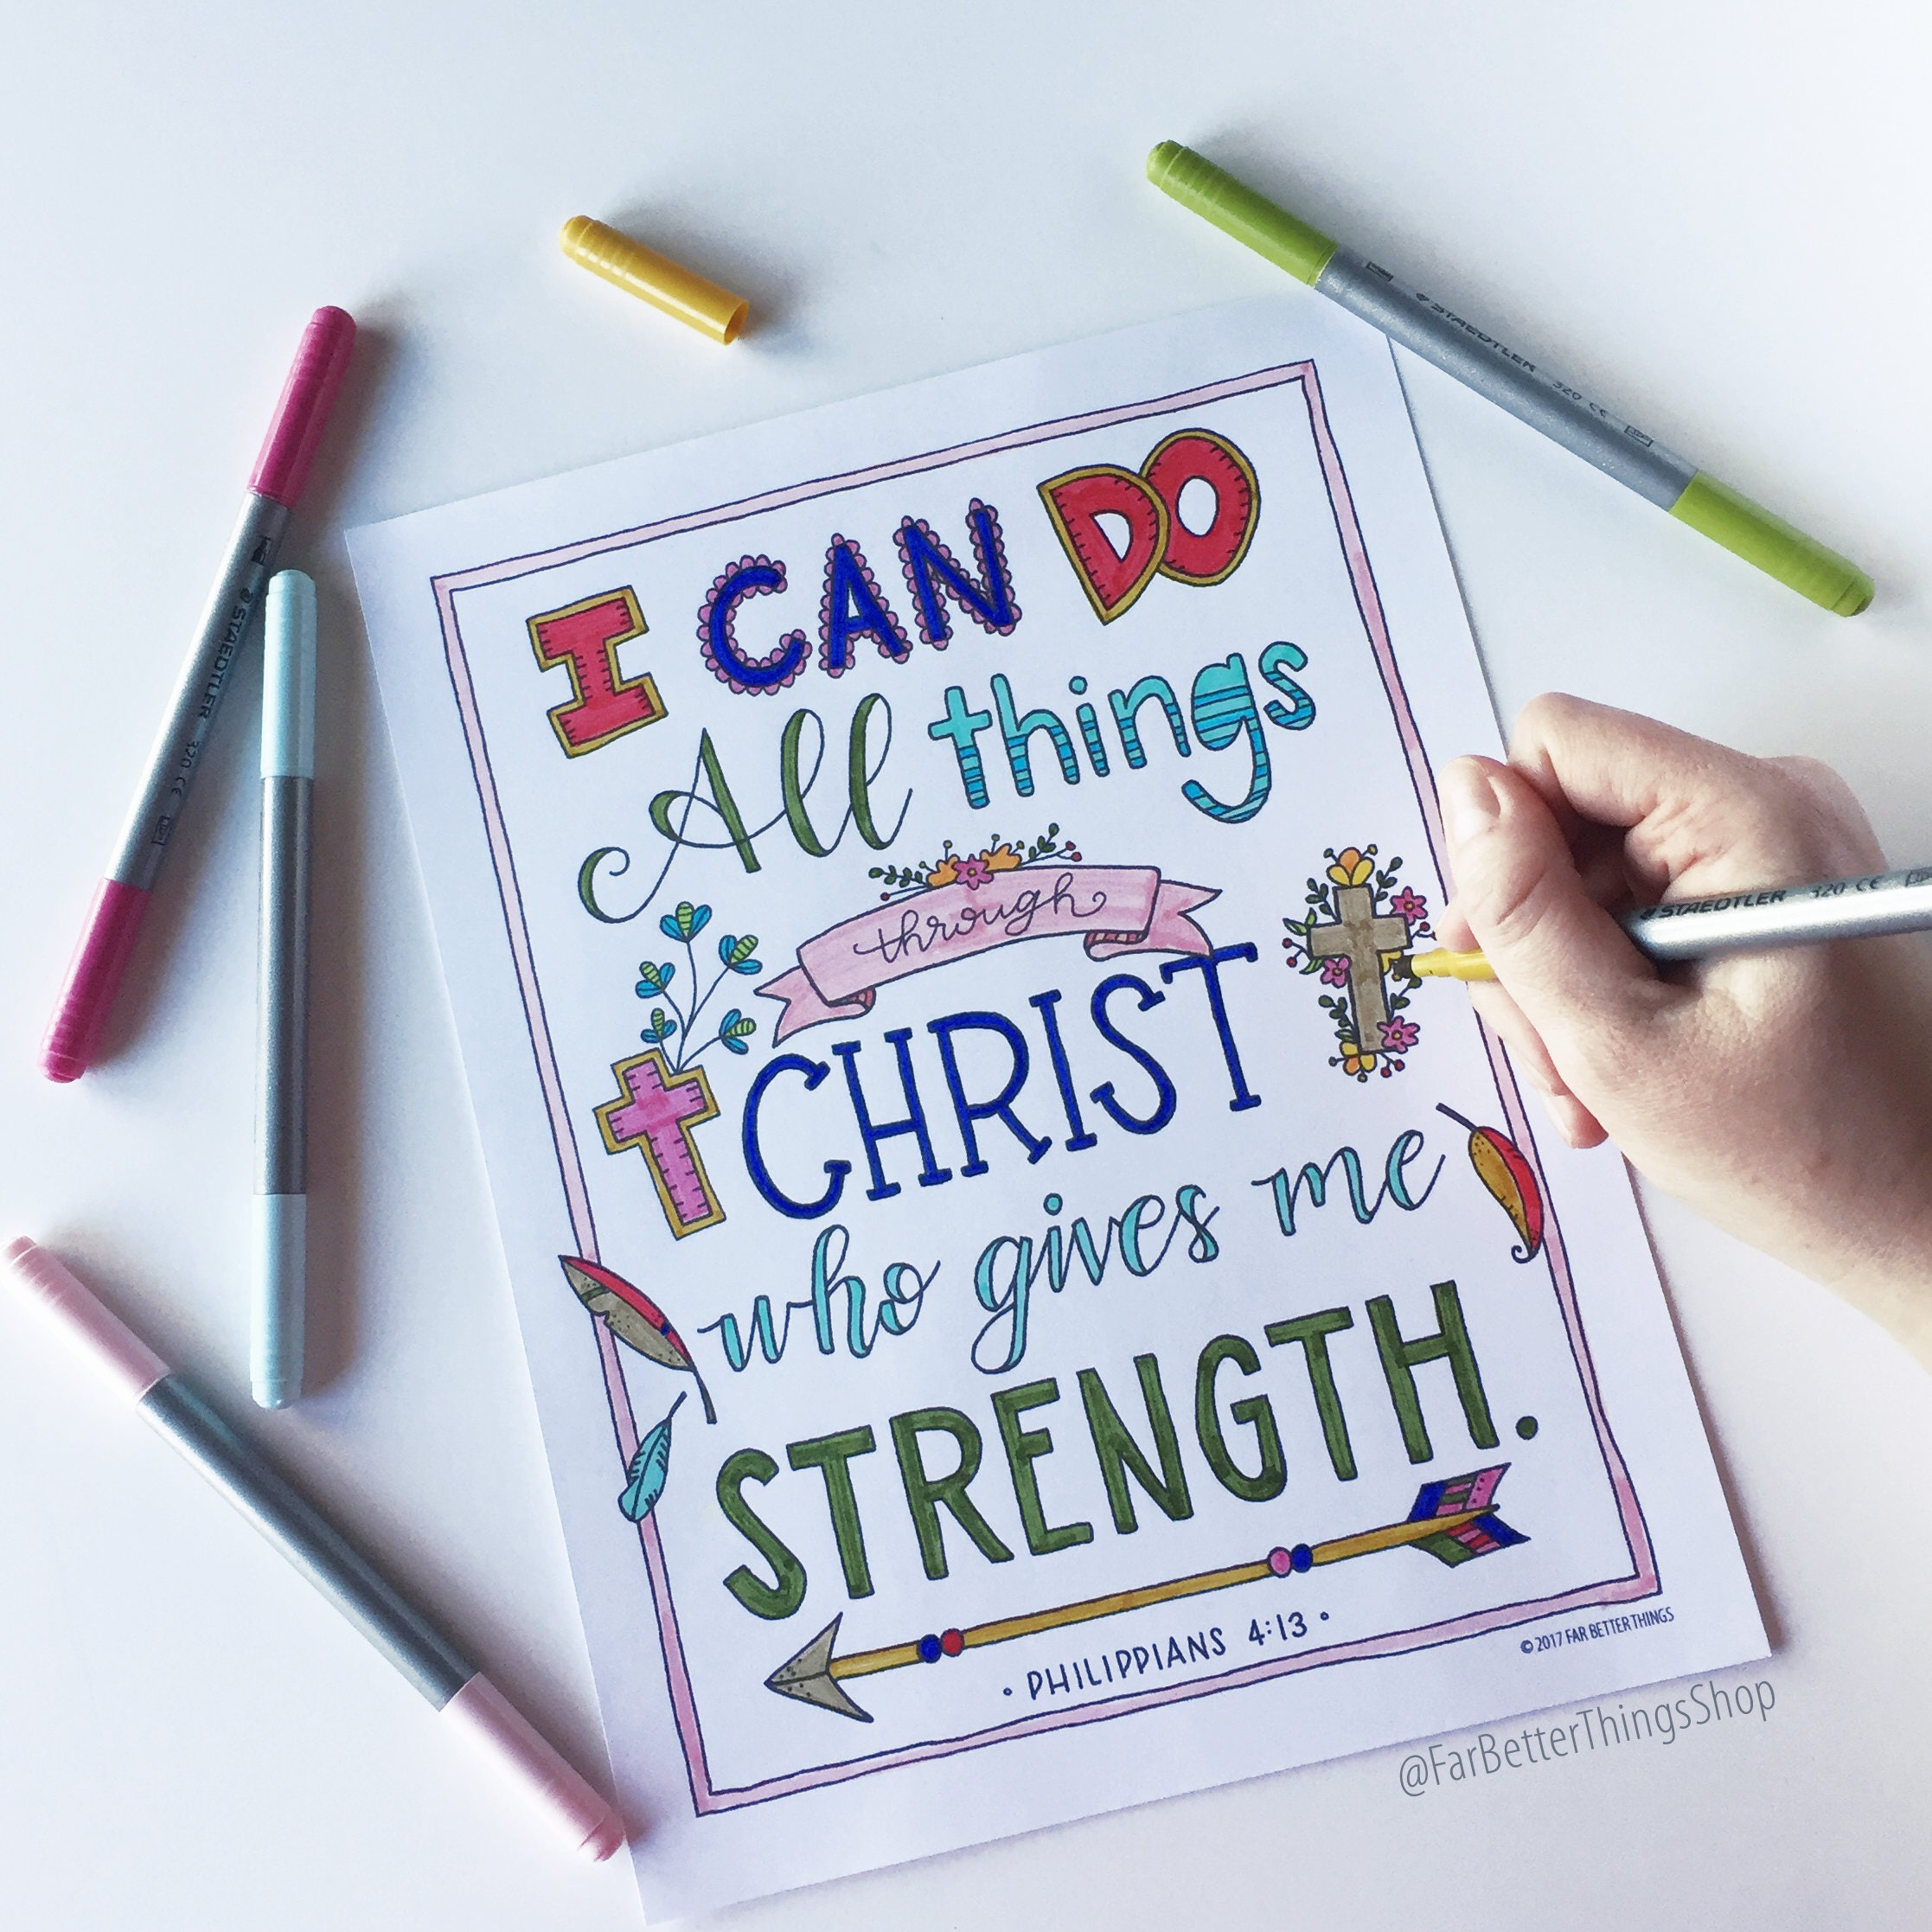 I CAN DO
All things
through
CHRIST
who gives me
STRENGTH.
• PHILIPPIANS 4:13 •
© 2017 FAR BETTER THINGS
@FarBetterThingsShop
STAEDTLER 320 CE
STAEDTLER 320 CE
STAEDTLER 320 CE